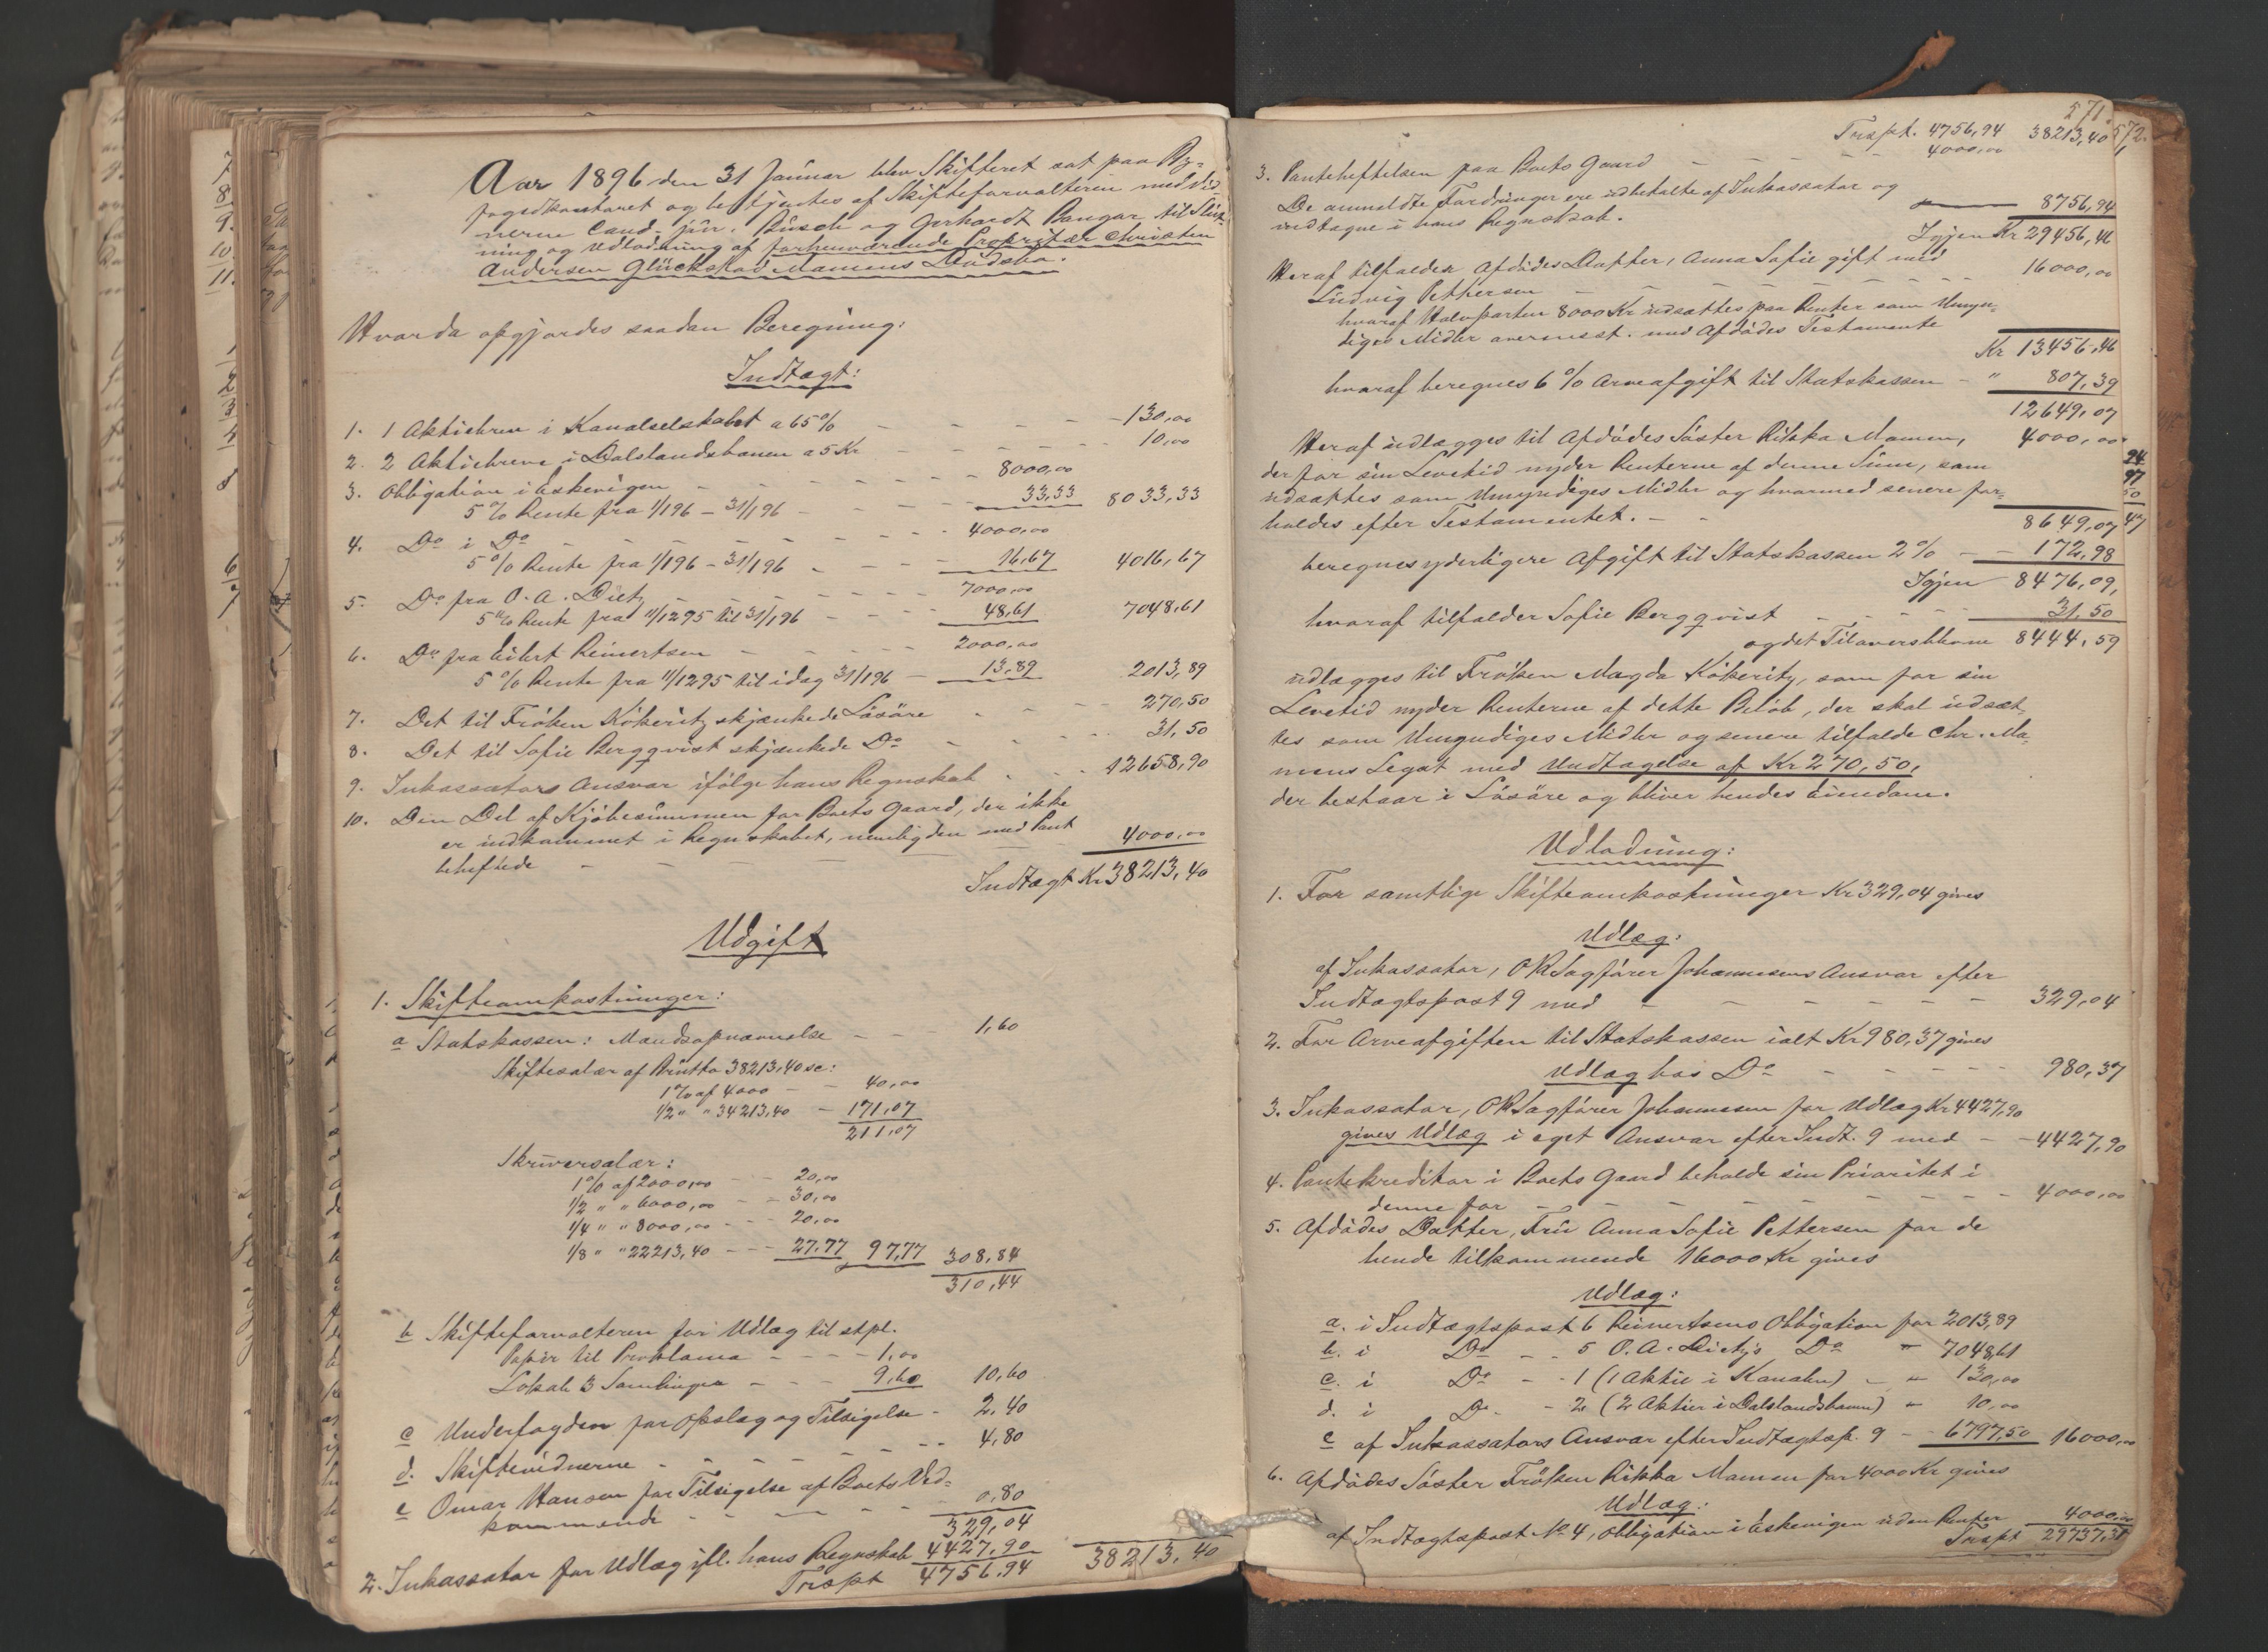 Aar 1896 den 31 Januar blev Skifteret sat paa By-
fogedkontoret og betjentes af Skifteforvalteren med Vid-
nerne Cand. jur. Busch og Gerhardt Bangar til Slut-
ning og Udlodning af forhenværende Proprietær Christen
Andersen Glückstad Mamens Dødsbo.
Hvorda opgjordes saadan Beregning:
Indtægt:
1. 1 Aktiebrev i Kanalselskabet a 65% - - - 130,00
2. 2 Aktiebreve i Dalslandsbanen a 5 Kr - - - 10,00
3. Obligation i Eskevigen - - 8000,00
5% Rente fra 1/1 96 - 31/1 96 - - 33,33 8033,33
4. Do i Do - - - 4000,00
5% Rente fra 1/1 96 - 31/1 96 - - 16,67 4016,67
5. Do fra O. A. Dietz - - - 7000,00
5% Rente fra 11/12 95 til 31/1 96 - - 48,61 7048,61
6. Do fra Eilert Reinertsen - - - 2000,00
5% Rente fra 11/12 95 til idag 31/1 96 - 13,89 2013,89
7. Det til Frøken Kökeritz skjænkede Løsøre - - - 270,50
8. Det til Sofie Bergqvist skjænkede Do - - - 31,50
9. Inkassators Ansvar ifølge hans Regnskab - - - 12658,90
10. Den Del af Kjøbesummen for Boets Gaard, der ikke
er indkommet i Regnskabet, nemlig den med Pant
beheftede - - - 4000,00
Indtægt Kr 38213,40
Udgift
1. Skifteomkostninger:
a Statskassen: Mandsopnævnelse - - 1,60
Skiftesalær af Brutto 38213,40 sc:
1% af 4000 - - 40,00
1/2 " " 34213,40 - 171,07
211,07
Skriversalær:
1% af 2000,00 - - 20,00
1/2 " " 6000,00 - - 30,00
1/4 " " 8000,00 - - 20,00
1/8 " " 22213,40 - - 27,77 97,77 308,84
310,44
b Skifteforvalteren for Udlæg til stpl.
Papir til Proklama - - - 1,00
Lokale 3 Samlinger - - - 9,60 10,60
c Underfogden for Opslag og Tilsigelse - 2,40
d. Skiftevidnerne - - - 4,80
e Omar Hansen for Tilsigelse af Boets Ved-
kommende - - - 0,80
329,04
2. Inkassator for Udlæg ifl. hans Regnskab 4427,90
Trspt 4756,94 38213,40
571.
572.
Trspt. 4756,94 38213,40
3. Panteheftelsen paa Boets Gaard - - - 4000,00
De anmeldte Fordringer ere udbetalte af Inkassator og
indtagne i hans Regnskab. 8756,94
Igjen Kr 29456,46
Heraf tilfalder Afdødes Datter, Anna Sofie gift med
Ludvig Pettersen - - - 16000,00
hvoraf Halvparten 8000 Kr udsættes paa Renter som Umyn-
diges Midler overensst. med Afdødes Testamente
Kr 13456,46
hvoraf beregnes 6% Arveafgift til Statskassen - " 807,39
12649,07
Heraf udlægges til Afdødes Søster Rikka Mamen, 4000,00
der for sin Levetid nyder Renterne af denne Sum, som
udsættes som Umyndiges Midler og hvormed senere for-
holdes efter Testamentet. - - 8649,07
beregnes yderligere Afgift til Statskassen 2% - - 172,98
Igjen 8476,09,
hvoraf tilfalder Sofie Bergqvist - - - 31,50
og det Tiloversblevne 8444,59
udlægges til Frøken Magda Kökeritz, som for sin
Levetid nyder Renterne af dette Beløb, der skal udsæt-
tes som Umyndiges Midler og senere tilfalde Chr. Ma-
mens Legat med Undtagelse af Kr 270,50,
der bestaar i Løsøre og bliver hendes Eiendom.
Udlodning:
1. For samtlige Skifteomkostninger Kr 329,04 gives
Udlæg:
af Inkassator, O R Sagfører Johannesens Ansvar efter
Indtægtspost 9 med - - - 329,04
2. For Arveafgiften til Statskassen ialt Kr 980,37 gives
Udlæg hos Do - - - 980,37
3. Inkassator, O R Sagfører Johannesen for Udlæg Kr 4427,90
gives Udlæg i eget Ansvar efter Indt. 9 med - - 4427,90
4. Pantekreditor i Boets Gaard beholde sin Prioritet i
denne for - - - 4000,00
5. Afdødes Datter, Fru Anna Sofie Pettersen for de
hende tilkommende 16000 Kr gives
Udlæg:
a. i Indtægtspost 6 Reinertsens Obligation for 2013,89
b. i Do - - 5 O. A. Dietz's Do " 7048,61
c. i Do - - 1 (1 Aktie i Kanalen) - " 130,00
d. i Do - - 2 (2 Aktier i Dalslandsbanen) " 10,00
e af Inkassators Ansvar efter Indtægtsp. 9 - - 6797,50 16000,00
6. Afdødes Søster Frøken Rikka Mamen for 4000 Kr gives
Udlæg:
af Indtægtspost No 4, Obligation i Eskevigen uden Renter 4000,00
Trspt 29737,31